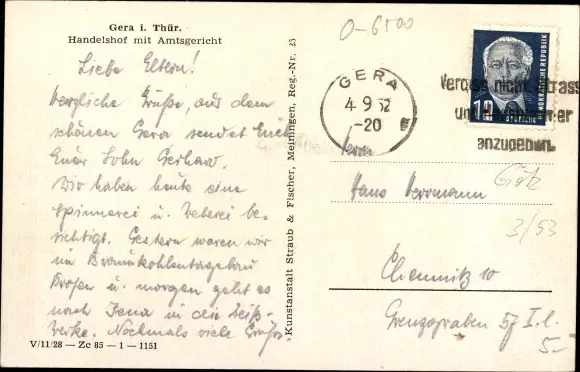 Gera i. Thür.
Handelshof mit Amtsgericht
Liebe Eltern!
Herzliche Grüße, aus dem
schönen Gera sendet Euch
Euer Sohn Gerhard.
Wir haben heute eine
Spinnerei u. Weberei be-
sichtigt. Gestern waren wir
im Braunkohlentagebau
Profen u. morgen geht es
nach Jena in die Zeiß-
werke. Nochmals viele Grüße
V/11/28 — Zc 85 — 1 — 1151
Kunstanstalt Straub & Fischer, Meiningen, Reg.-Nr. 25
GERA
4.9.52
-20
Vergiss nicht Strass
und
anzugeben.
12
DEUTSCHE
DEMOKRATISCHE REPUBLIK
Herrn
Hans Herrmann
Chemnitz 10
Grenzgraben 57 I. l.
O-6500
Götz
3/53
5-